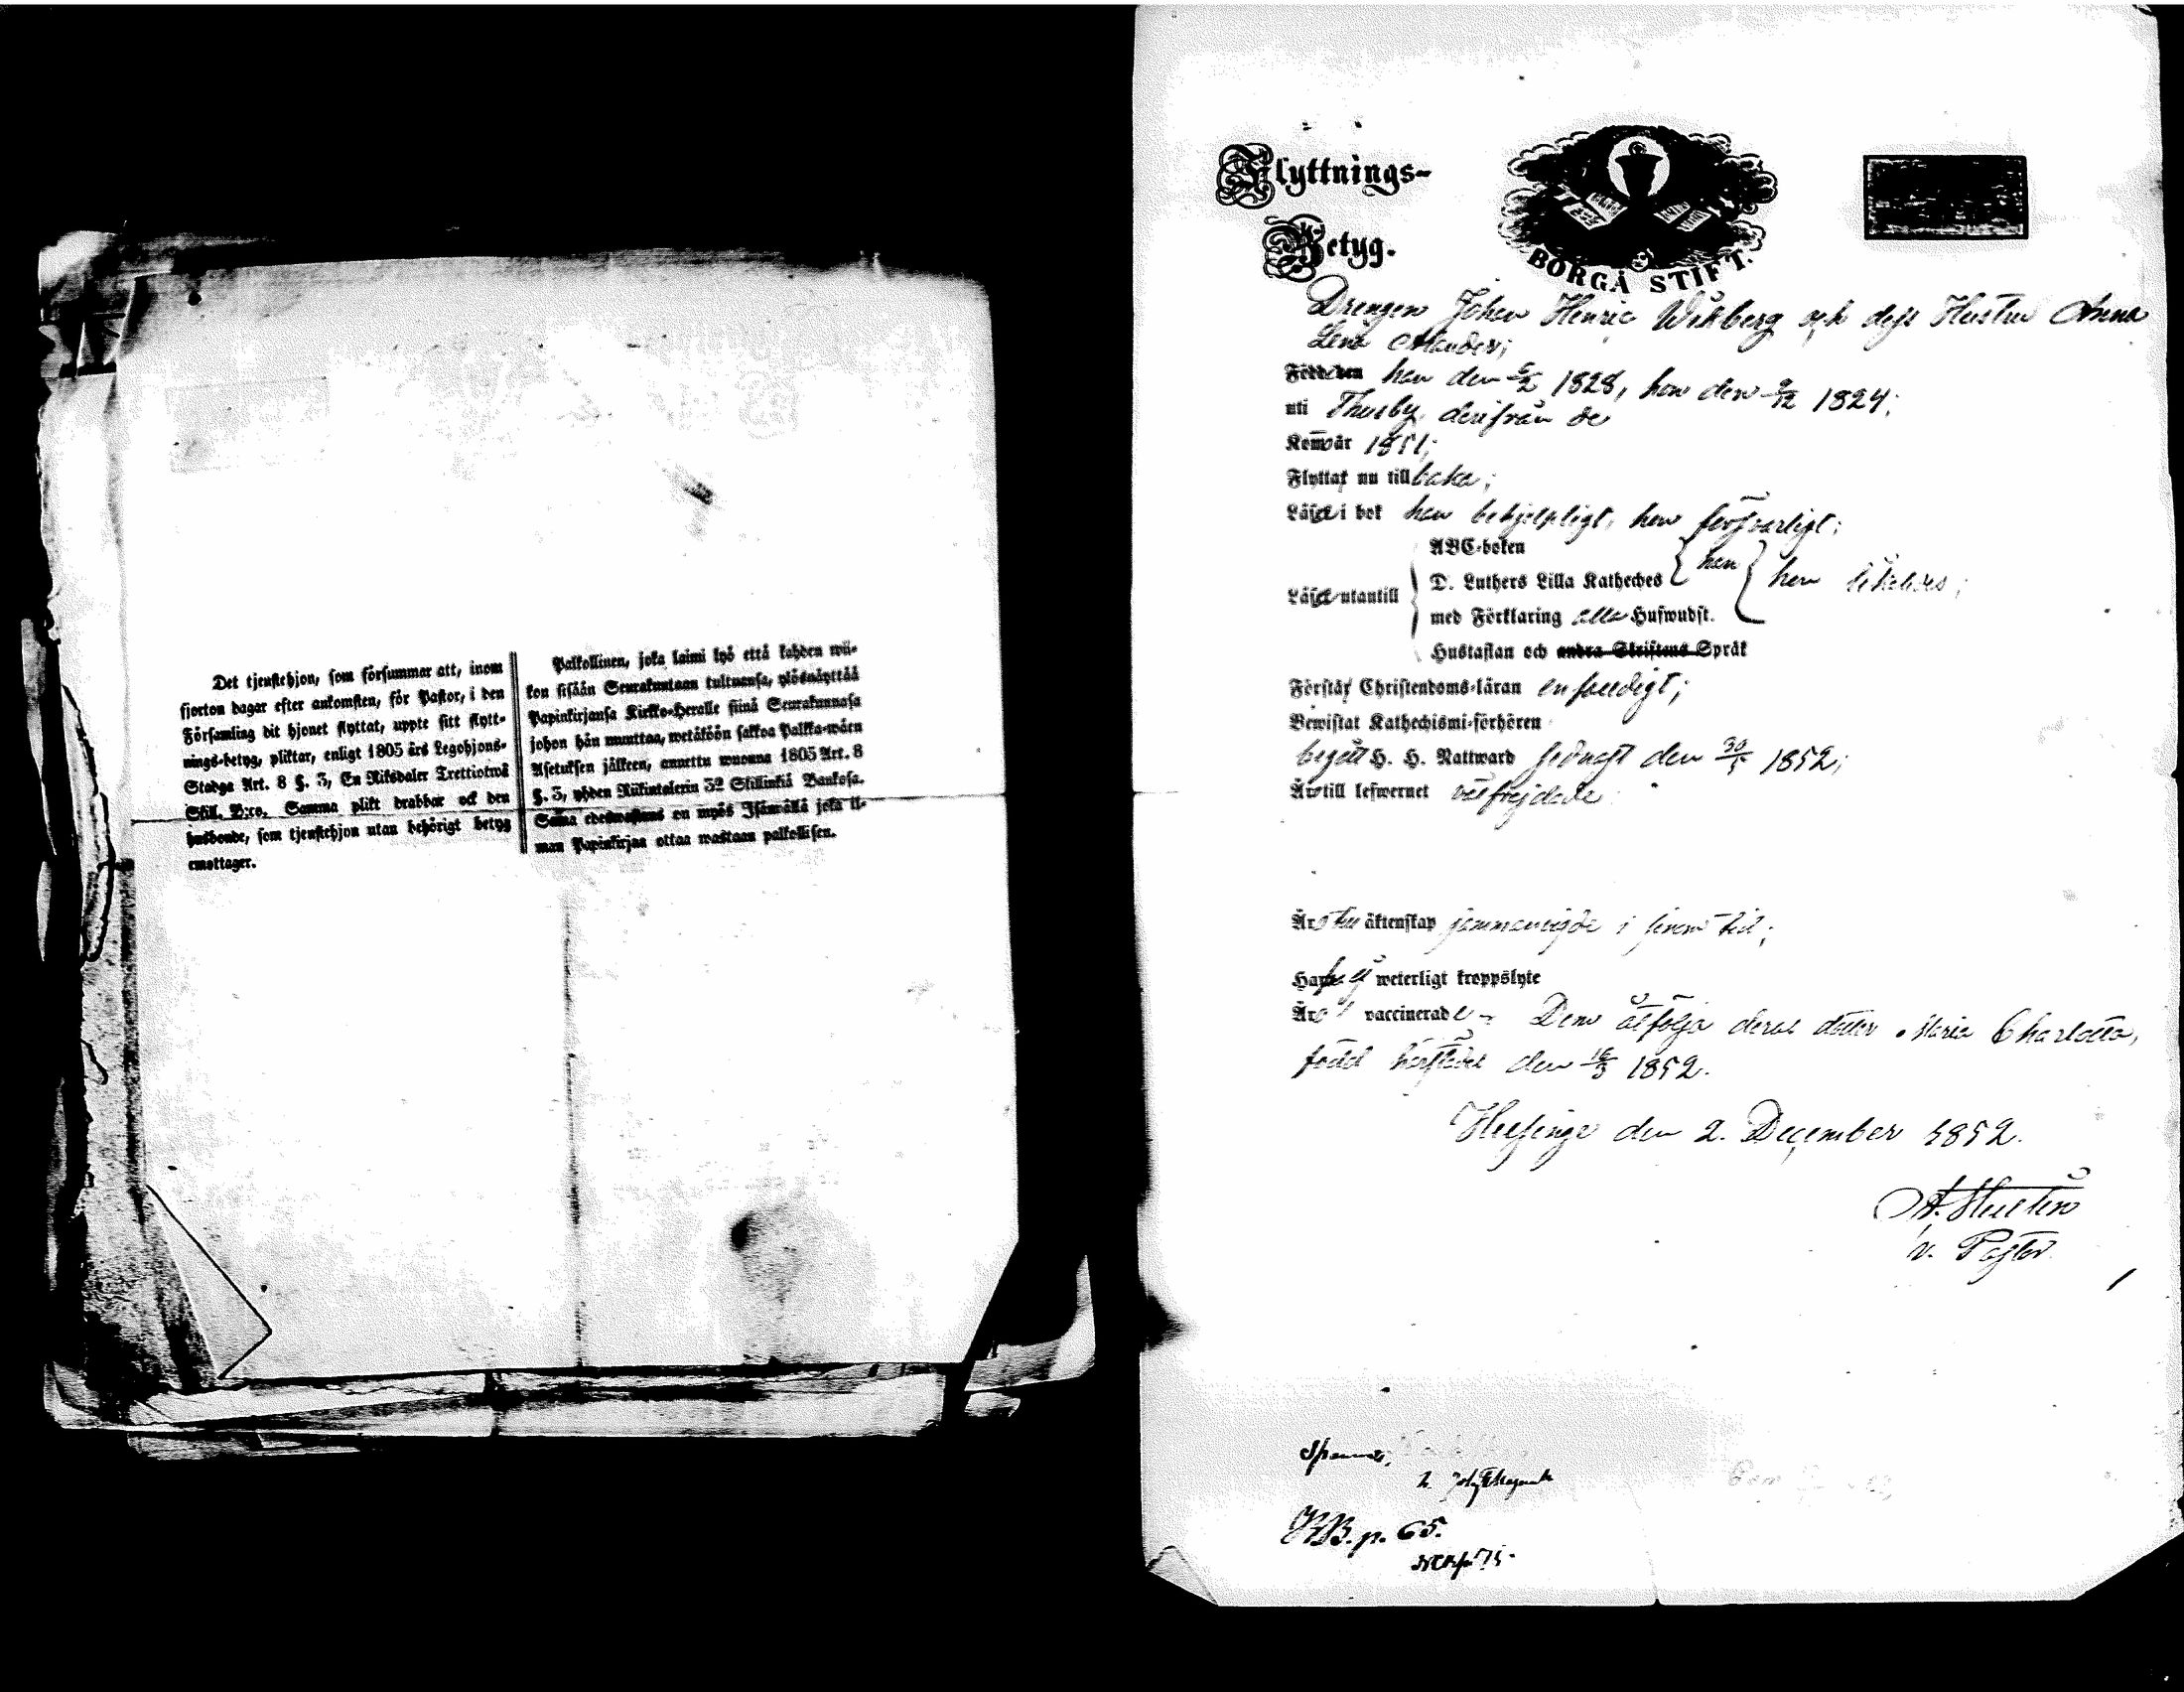 Det tjenstehjon, som försummar att, inom
fjorton dagar efter ankomsten, för Pastor, i den
Församling dit hjonet flyttat, uppte sitt flytt-
nings-betyg, pliktar, enligt 1805 års Legohjons-
Stadga Art. 8 §. 3, En Riksdaler Trettiotwå
Skill. B:co. Samma plikt drabbar ock den
husbonde, som tjenstehjon utan behörigt betyg
emottager.
Palkollinen, joka laimi lyö että kahden wii-
kon sisään Seurakuntaan tultuansa, ylösnäyttää
Papinkirjansa Kirkko-Herralle siinä Seurakunnasa
johon hän muuttaa, wetäköön sakkoa Palkka-wäen
Asetuksen jälkeen, annettu wuonna 1805 Art. 8
§. 3, yhden Riikintalerin 32 Skillinkiä Bankosa.
Sama edeswastaus on myös Isännällä joka il-
man Papinkirjaa ottaa wastaan palkollisen.
Flyttnings-
Betyg.
BORGÅ STIFT.
Drengen Johan Henric Wikberg och dess Hustru Anna
Lena
Född den han den 6/2 1828, hon den 9/12 1824;
uti Thusby, derifrån de
Kom år 1851;
Flyttat nu tillbaka;
Läser i bok han behjelpligt, hon försvarligt;
ABC-boken
D. Luthers Lilla Katheches han
Läser utantill hon likaledes;
med Förklaring alla Hufwudst.
Hustaflan och andra Skriftens Språk
Förstår Christendoms-läran enfaldigt;
Bewistat Kathechismi-förhören
begått H. H. Nattward sednast den 30/5 1852;
Äro till lefwernet välfrejdade
Äro äktenskap sammanvigde i sinom tid;
Hafva ej weterligt kroppslyte
Äro vaccinerade Dem åtfölja deras dotter Maria Charlotta,
född härstädes den 16/3 1852.
Helsinge den 2. December 1852.
A. Hultin
v. Pastor.
KB. p. 65.